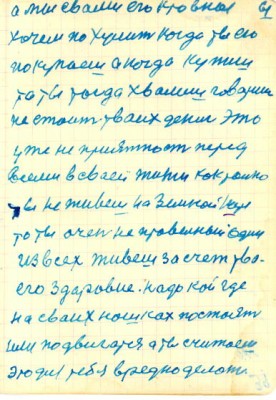 а мы сваим его кровным
хочем похулит когда ты его
покупаеш а когда купиш
то ты тогда хваиш говориш
не стоит тваих дених Это
уже не приятност перед
всеми в сваей жизни как только
ты не живеш на Земной
то ты очен не правелный один
из всех живеш за счет тво-
его здаровие. надо кой где
на сваих ношках постоят
или подвигатся а ты считаеш
это для тебя вредно делат.